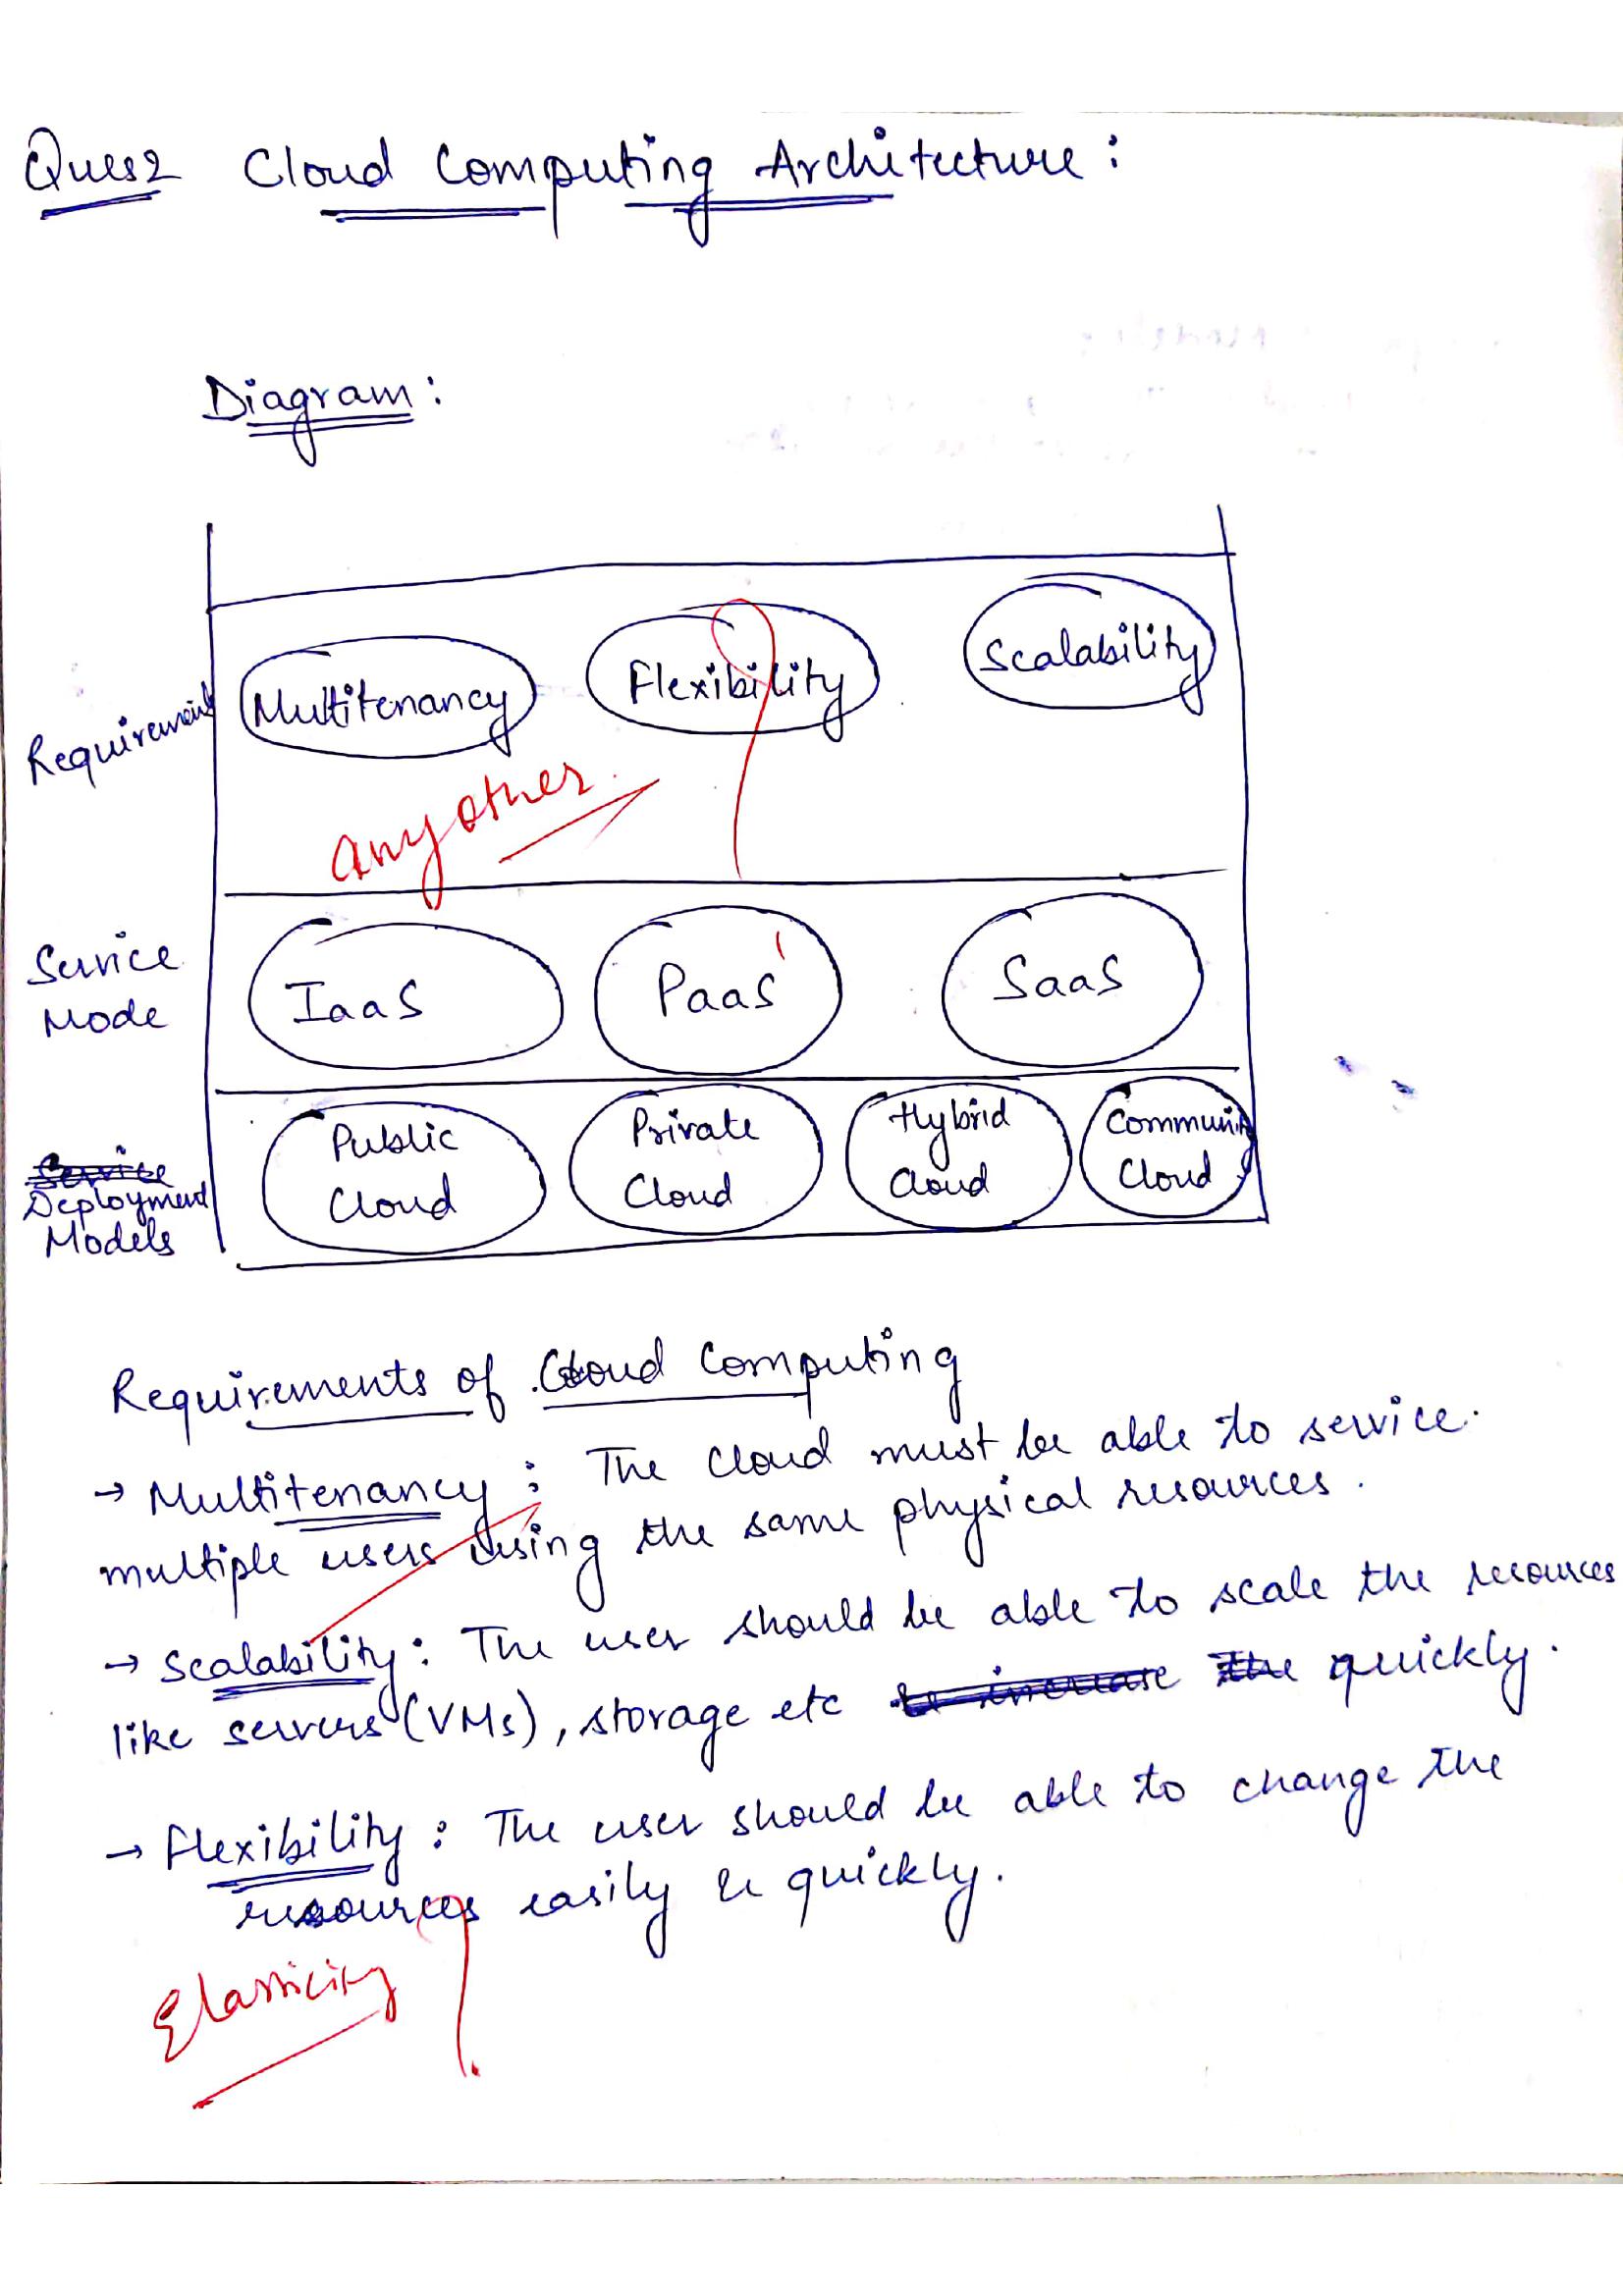 Ques2 Cloud Computing Architecture:
Diagram:
Requirement
Multitenancy
Flexibility
Scalability
any other
Service
Mode
IaaS
PaaS
SaaS
Service
Deployment
Models
Public
Cloud
Private
Cloud
Hybrid
Cloud
Community
Cloud
Requirements of Cloud Computing
→ Multitenancy: The cloud must be able to service.
multiple users using the same physical resources.
→ Scalability: The user should be able to scale the resources
like servers (VMs), storage etc to increase the quickly.
→ Flexibility: The user should be able to change the
resources easily & quickly.
Elasticity